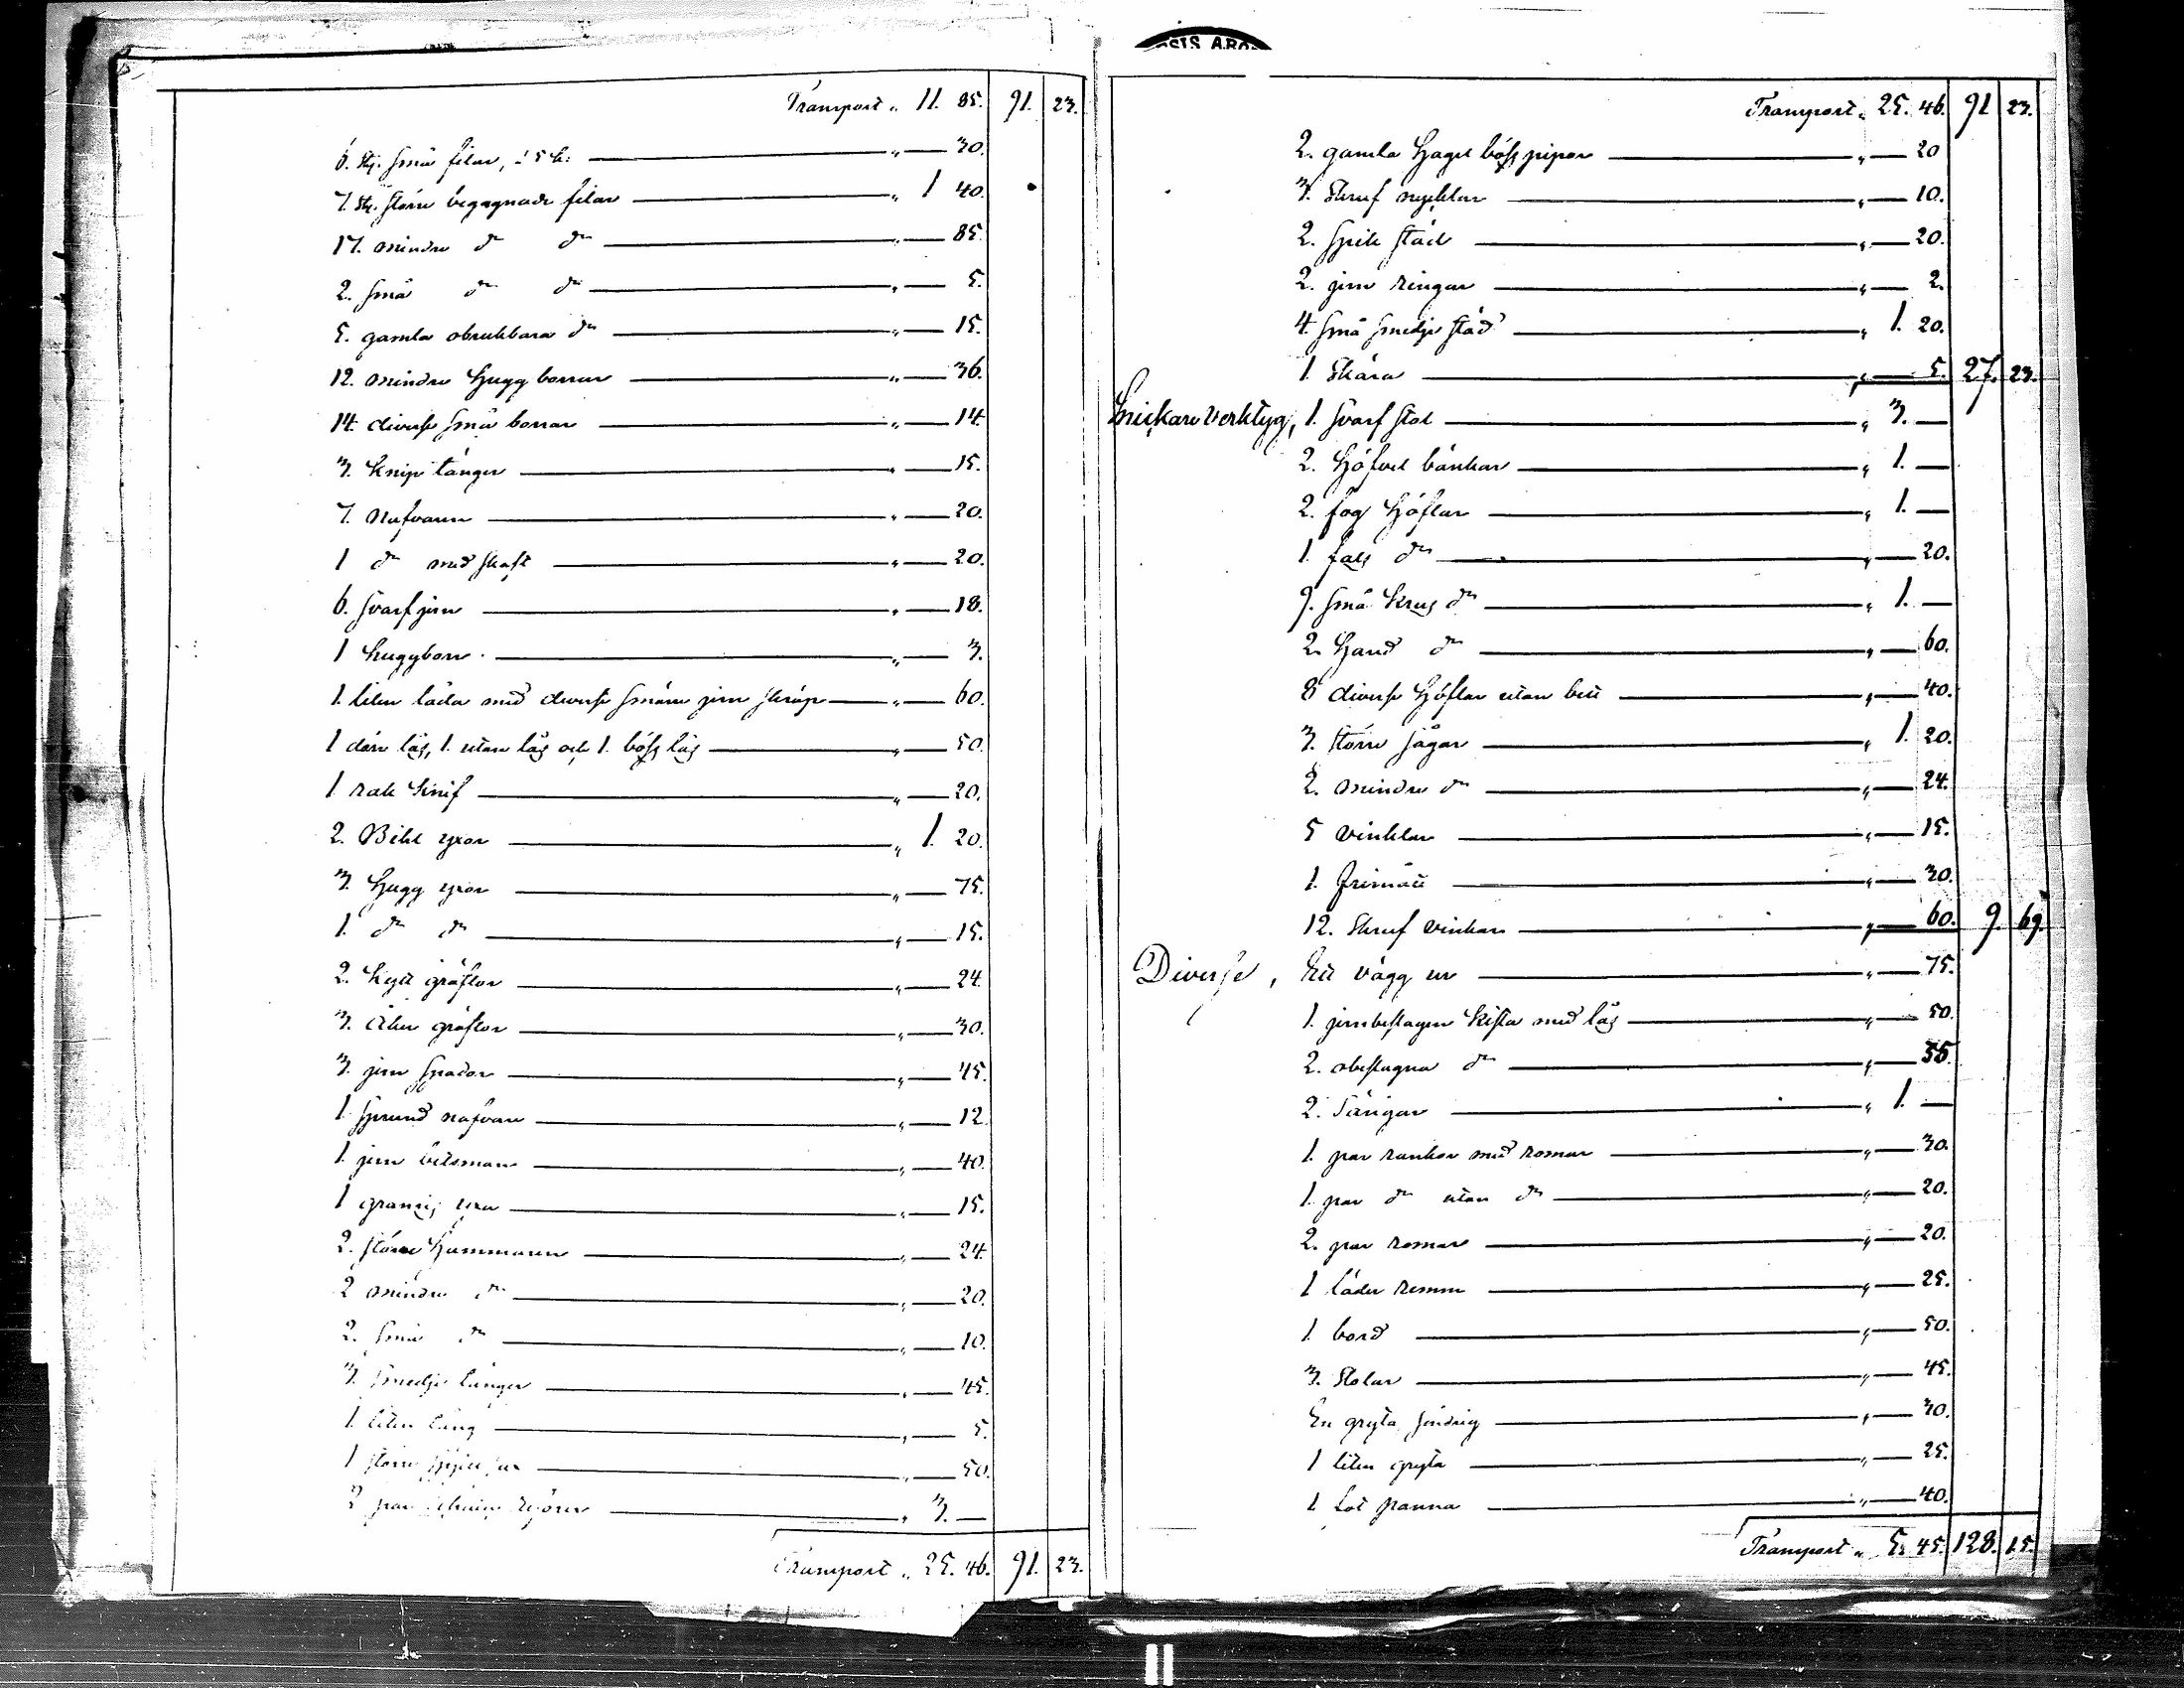 Transport „ 11. 85. 91. 23.
6. st. små filar, à 5 k: „ — 30.
7. st. större begagnade filar „ 1 40.
17. mindre do do „ — 85.
2. små do do „ — 5.
5. gamla obrukbara do „ — 15.
12. mindre Hugg borrar „ — 36.
14. diverse små borrar „ — 14.
3. Knip tänger „ — 15.
7. Nafvare „ — 20.
1 do med skaft „ — 20.
6. svarfjern „ — 18.
1 huggborr „ — 3.
1. liten låda med diverse smärre jern skräp „ — 60.
1 dörr lås, 1. utan lås och 1. böss lås „ — 50.
1 rak Knif „ — 20.
2. Bihl yxor „ 1. 20.
3. Hugg yxor „ — 75.
1. do do „ — 15.
2. Kytt gräftor „ — 24.
3. Åker gräftor „ — 30.
3. jern spador „ — 45.
1 sprund nafvare „ — 12
1. jern betsman „ — 40.
1 yxa „ — 15.
2. större Hammare „ — 24.
2 mindre do „ — 20.
2. små do „ — 10.
3. smedje tänger „ — 45.
1. liten tång „ — 5.
1 större „ — 50.
2 par „ 3. —
Transport „ 25. 46. 91. 23.
OSIS ABO
Transport „ 25. 46. 91 23.
2. gamla Hagel böss pipor „ — 20
3. Skruf nycklar „ — 10.
2. spik städ „ — 20.
2. jern ringar „ — 2.
4. små smedje städ „ 1. 20.
1. Skära „ — 5. 27. 23.
Snickare verktyg, 1. svarf stol „ 3. —
2. Höfvel bänkar „ 1. —
2. fog Höflar „ 1. —
1. fals do „ — 20.
9. små Krus do „ 1. —
2. Hand do „ — 60.
8 diverse Höflar utan bett „ — 40.
3. större sågar „ 1. 20.
2. mindre do „ — 24.
5 vinklar „ — 15.
1. „ — 30.
12. Skruf „ — 60. 9. 69.
Diverse, Ett vägg ur „ — 75.
1. jernbeslagen Kista med lås „ — 50.
2. obeslagna do „ — 55.
2. Sängar „ 1. —
1. par rankor med romar „ — 30.
1. par do utan do „ — 20.
2. par romar „ — 20.
1 läder remm „ — 25.
1. bord „ — 50.
3. Stolar „ — 45.
En gryta söndrig „ — 30.
1 liten gryta „ — 25.
1 panna „ — 40.
Transport „ 5. 45. 128. 15.